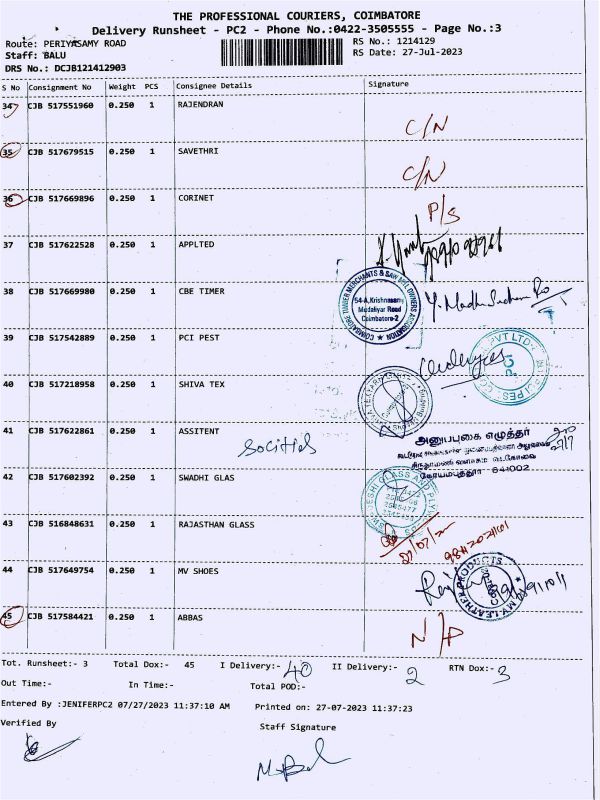 THE PROFESSIONAL COURIERS, COIMBATORE
Delivery Runsheet - PC2 - Phone No.:0422-3505555 - Page No.:3
Route: PERIYASAMY ROAD RS No.: 1214129
Staff: BALU RS Date: 27-Jul-2023
DRS No.: DCJB121412903
S No Consignment No Weight PCS Consignee Details Signature
34 CJB 517551960 0.250 1 RAJENDRAN
C/N
35 CJB 517679515 0.250 1 SAVETHRI
C/N
36 CJB 517669896 0.250 1 CORINET
P/S
37 CJB 517622528 0.250 1 APPLTED
38 CJB 517669980 0.250 1 CBE TIMER
COIMBATORE TIMBER MERCHANTS & SAW MILL OWNERS ASSOCIATION
54-A, Krishnasamy
Mudaliyar Road
Coimbatore-2
39 CJB 517542889 0.250 1 PCI PEST
PVT LTD
40 CJB 517218958 0.250 1 SHIVA TEX
41 CJB 517622861 0.250 1 ASSITENT
அனுப்புகை எழுத்தர்
கோயம்புத்தூர் 641002
42 CJB 517602392 0.250 1 SWADHI GLAS
43 CJB 516848631 0.250 1 RAJASTHAN GLASS
44 CJB 517649754 0.250 1 MV SHOES
MV LEATHER PRODUCTS
45 CJB 517584421 0.250 1 ABBAS
N/P
Tot. Runsheet:- 3 Total Dox:- 45 I Delivery:- 40 II Delivery:- 2 RTN Dox:- 3
Out Time:- In Time:- Total POD:-
Entered By :JENIFERPC2 07/27/2023 11:37:10 AM Printed on: 27-07-2023 11:37:23
Verified By Staff Signature